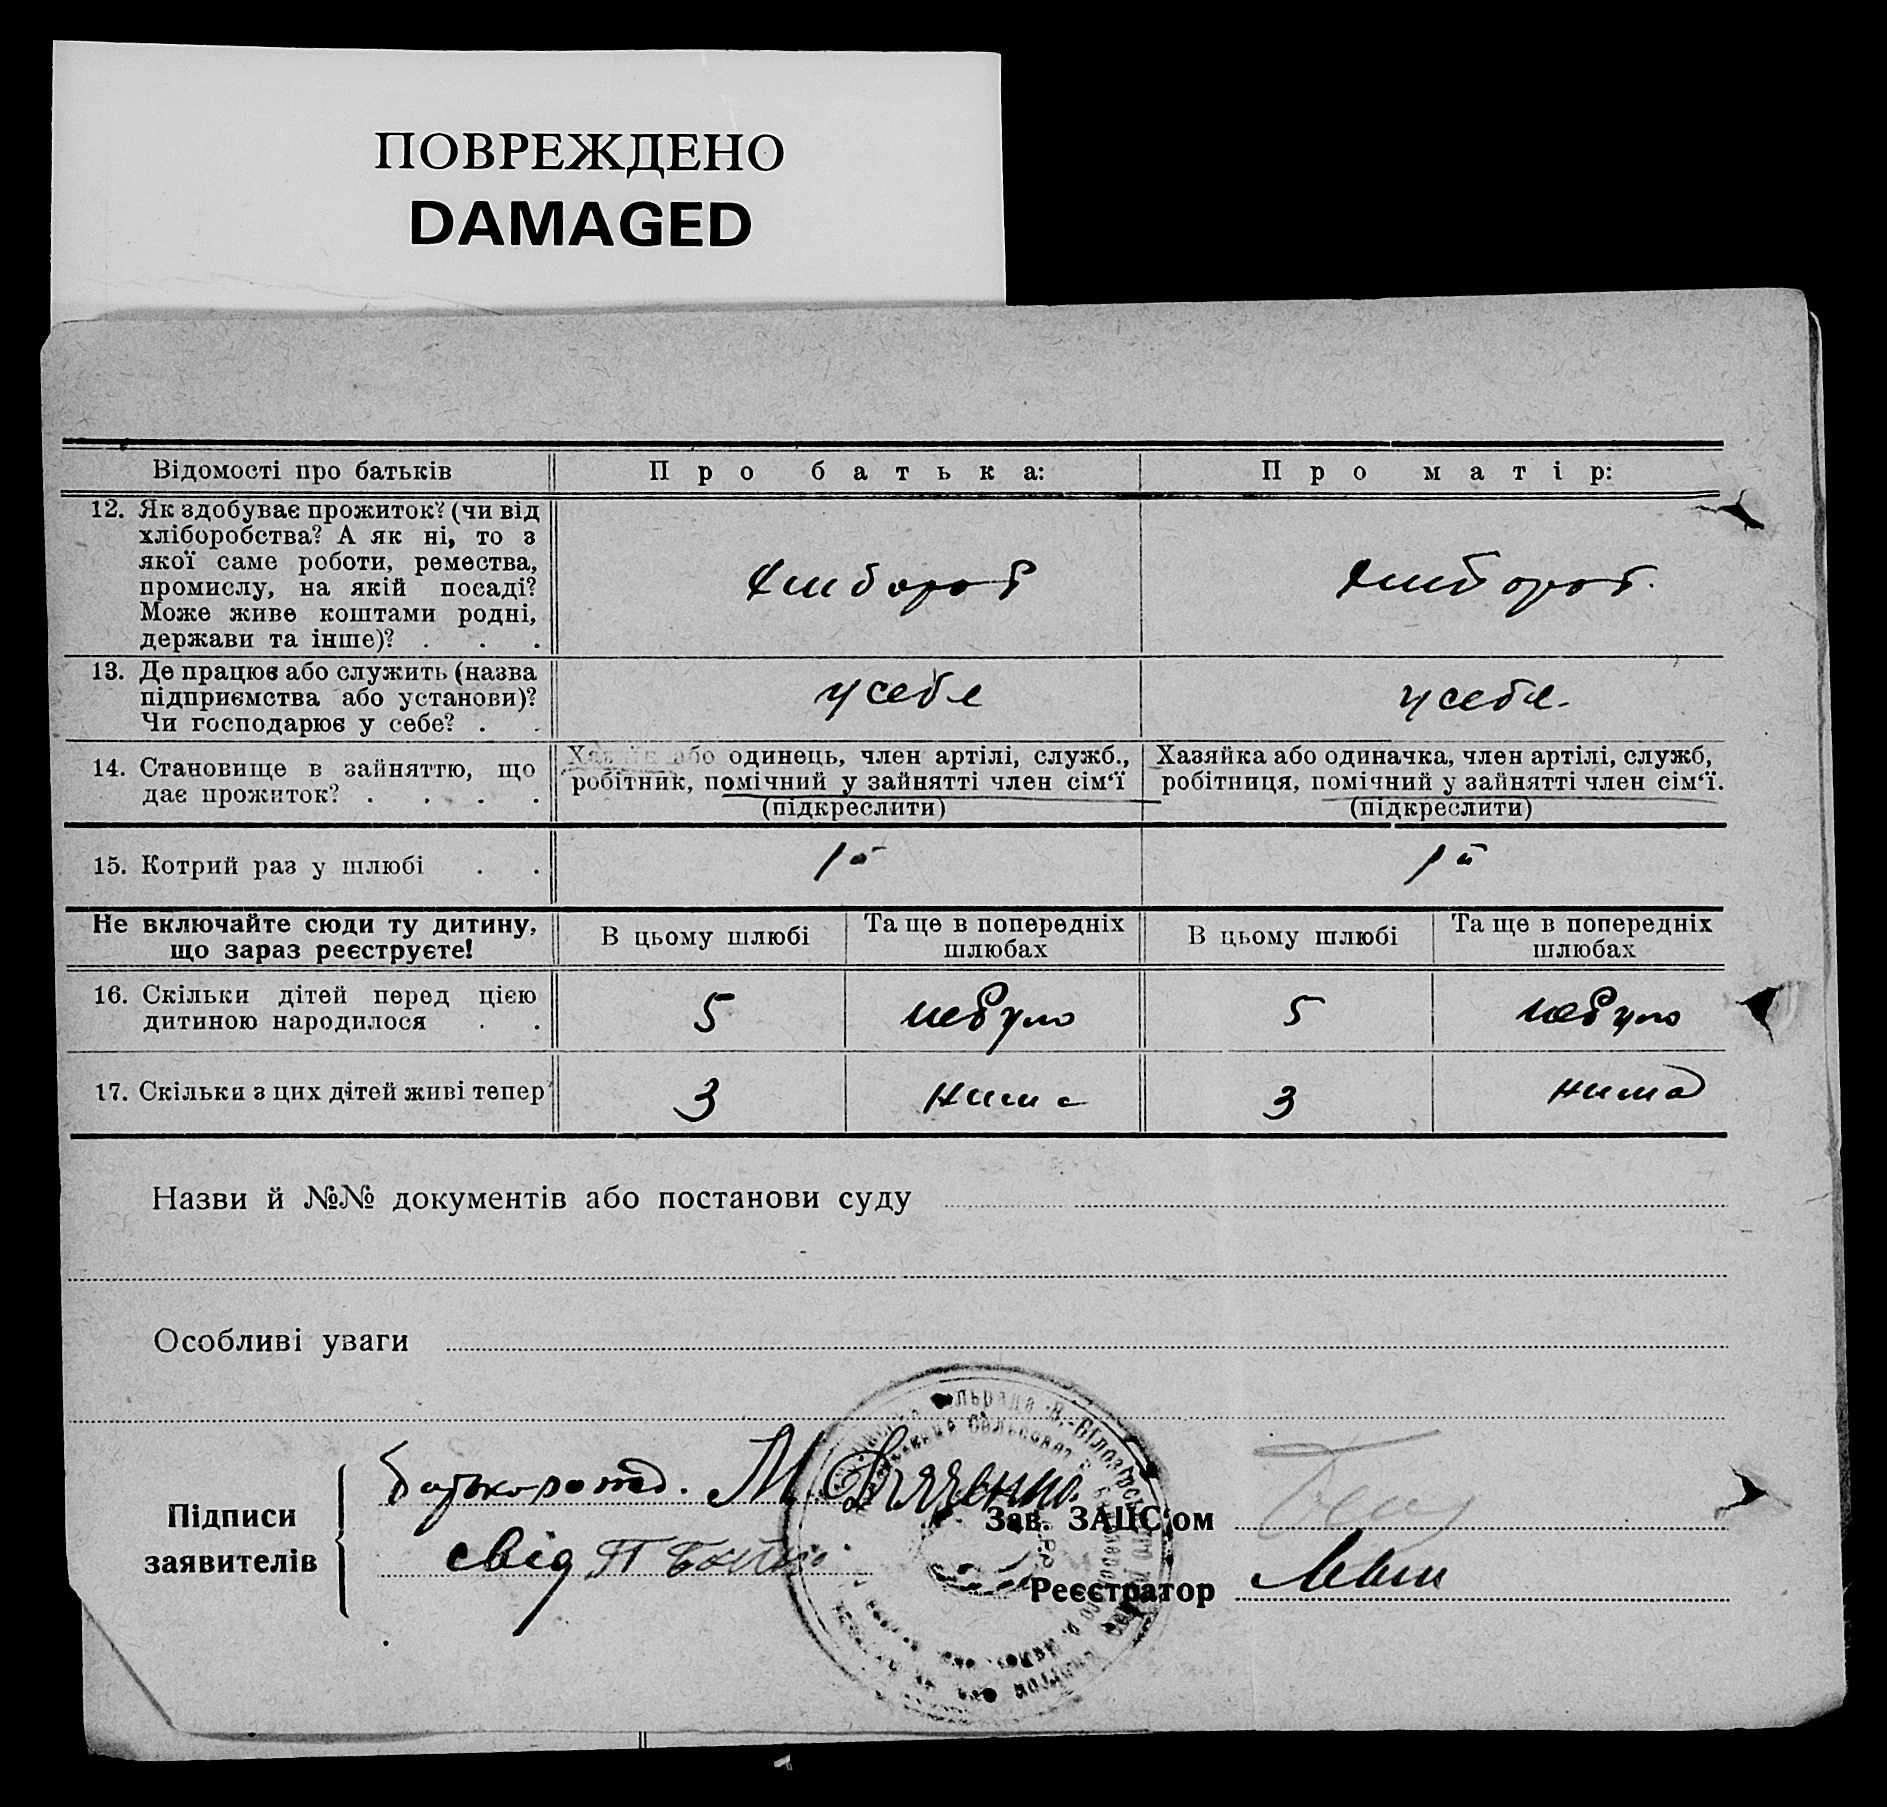 ПОВРЕЖДЕНО
DAMAGED
Відомості про батьків
Про батька:
Про матір:
12. Як здобуває прожиток? (чи від
хліборобства? А як ні, то з
якої саме роботи, ремества,
промислу, на якій посаді?
Може живе коштами родні,
держави та інше)? . . .
хлибороб
хлибороб.
13. Де працює або служить (назва
підприємства або установи)?
Чи господарює у себе? . .
у себе
у себе.
14. Становище в зайняттю, що
дає прожиток? . . . .
Хазяїн або одинець, член артілі, служб.,
робітник, помічний у зайнятті член сім‘ї
(підкреслити)
Хазяйка або одиначка, член артілі, служб,
робітниця, помічний у зайнятті член сім‘ї.
(підкреслити)
15. Котрий раз у шлюбі . .
1й
1й
Не включайте сюди ту дитину,
що зараз реєструєте!
В цьому шлюбі
Та ще в попередніх
шлюбах
В цьому шлюбі
Та ще в попередніх
шлюбах
16. Скільки дітей перед цією
дитиною народилося . .
5
небуло
5
небуло
17. Скільки з цих дітей живі тепер
3
нима
3
нима
Назви й №№ документів або постанови суду
Особливі уваги
Підписи
заявителів
М
свід П
Зав. ЗАЦС‘ом
Реєстратор